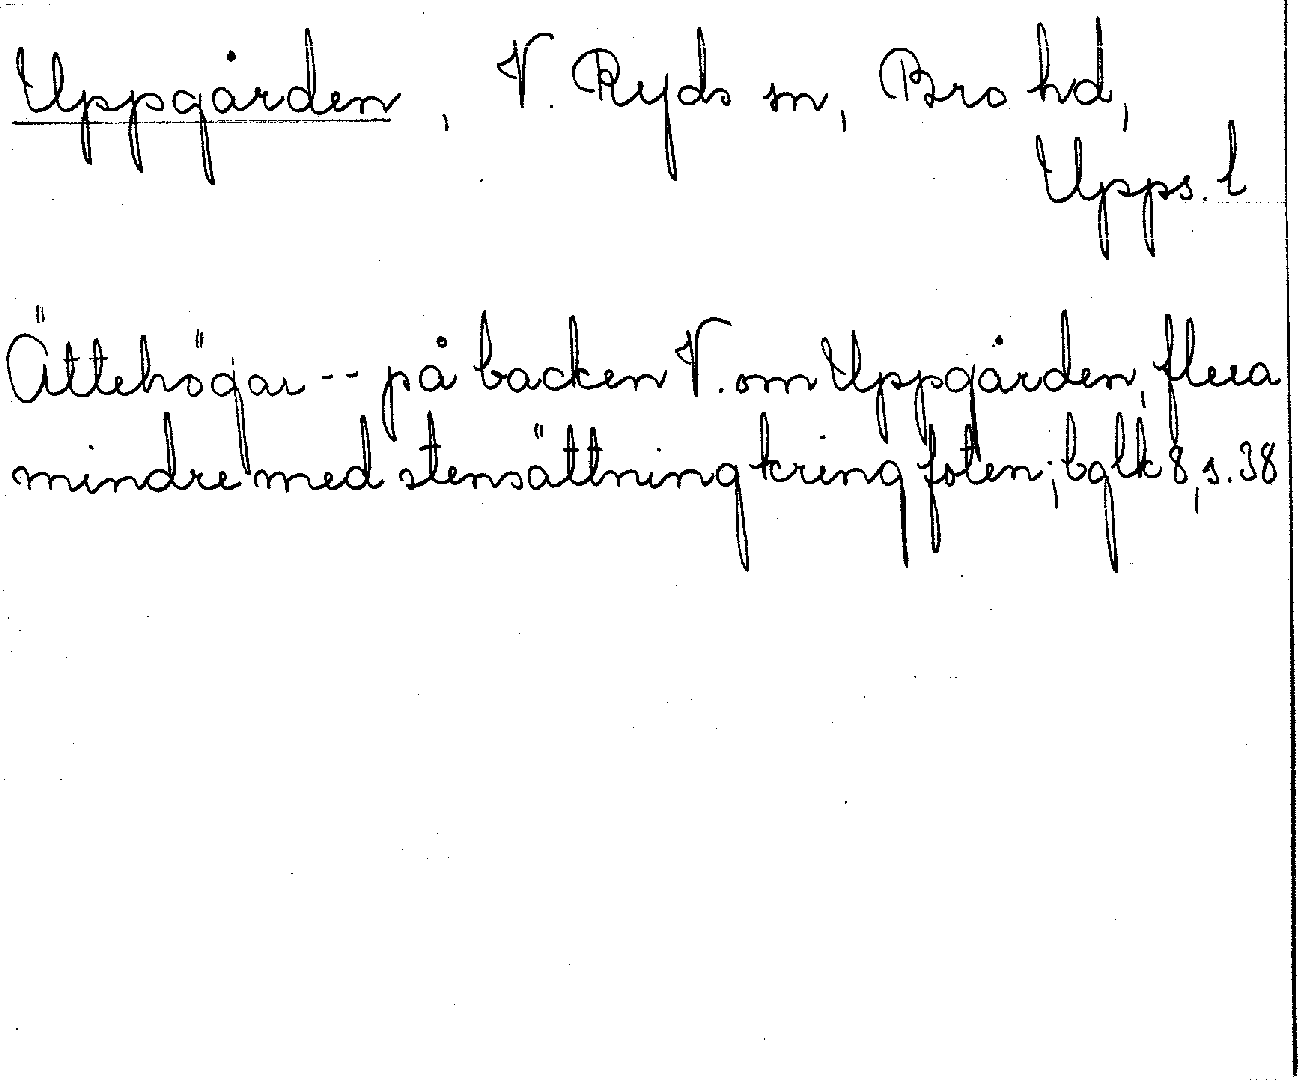 Uppgården, V. Ryds sn, Bro hd,
Upps. l
Ättehögar -- på backen V. om Uppgården, flera
mindre med stensättning kring foten; bglk 8, s. 38